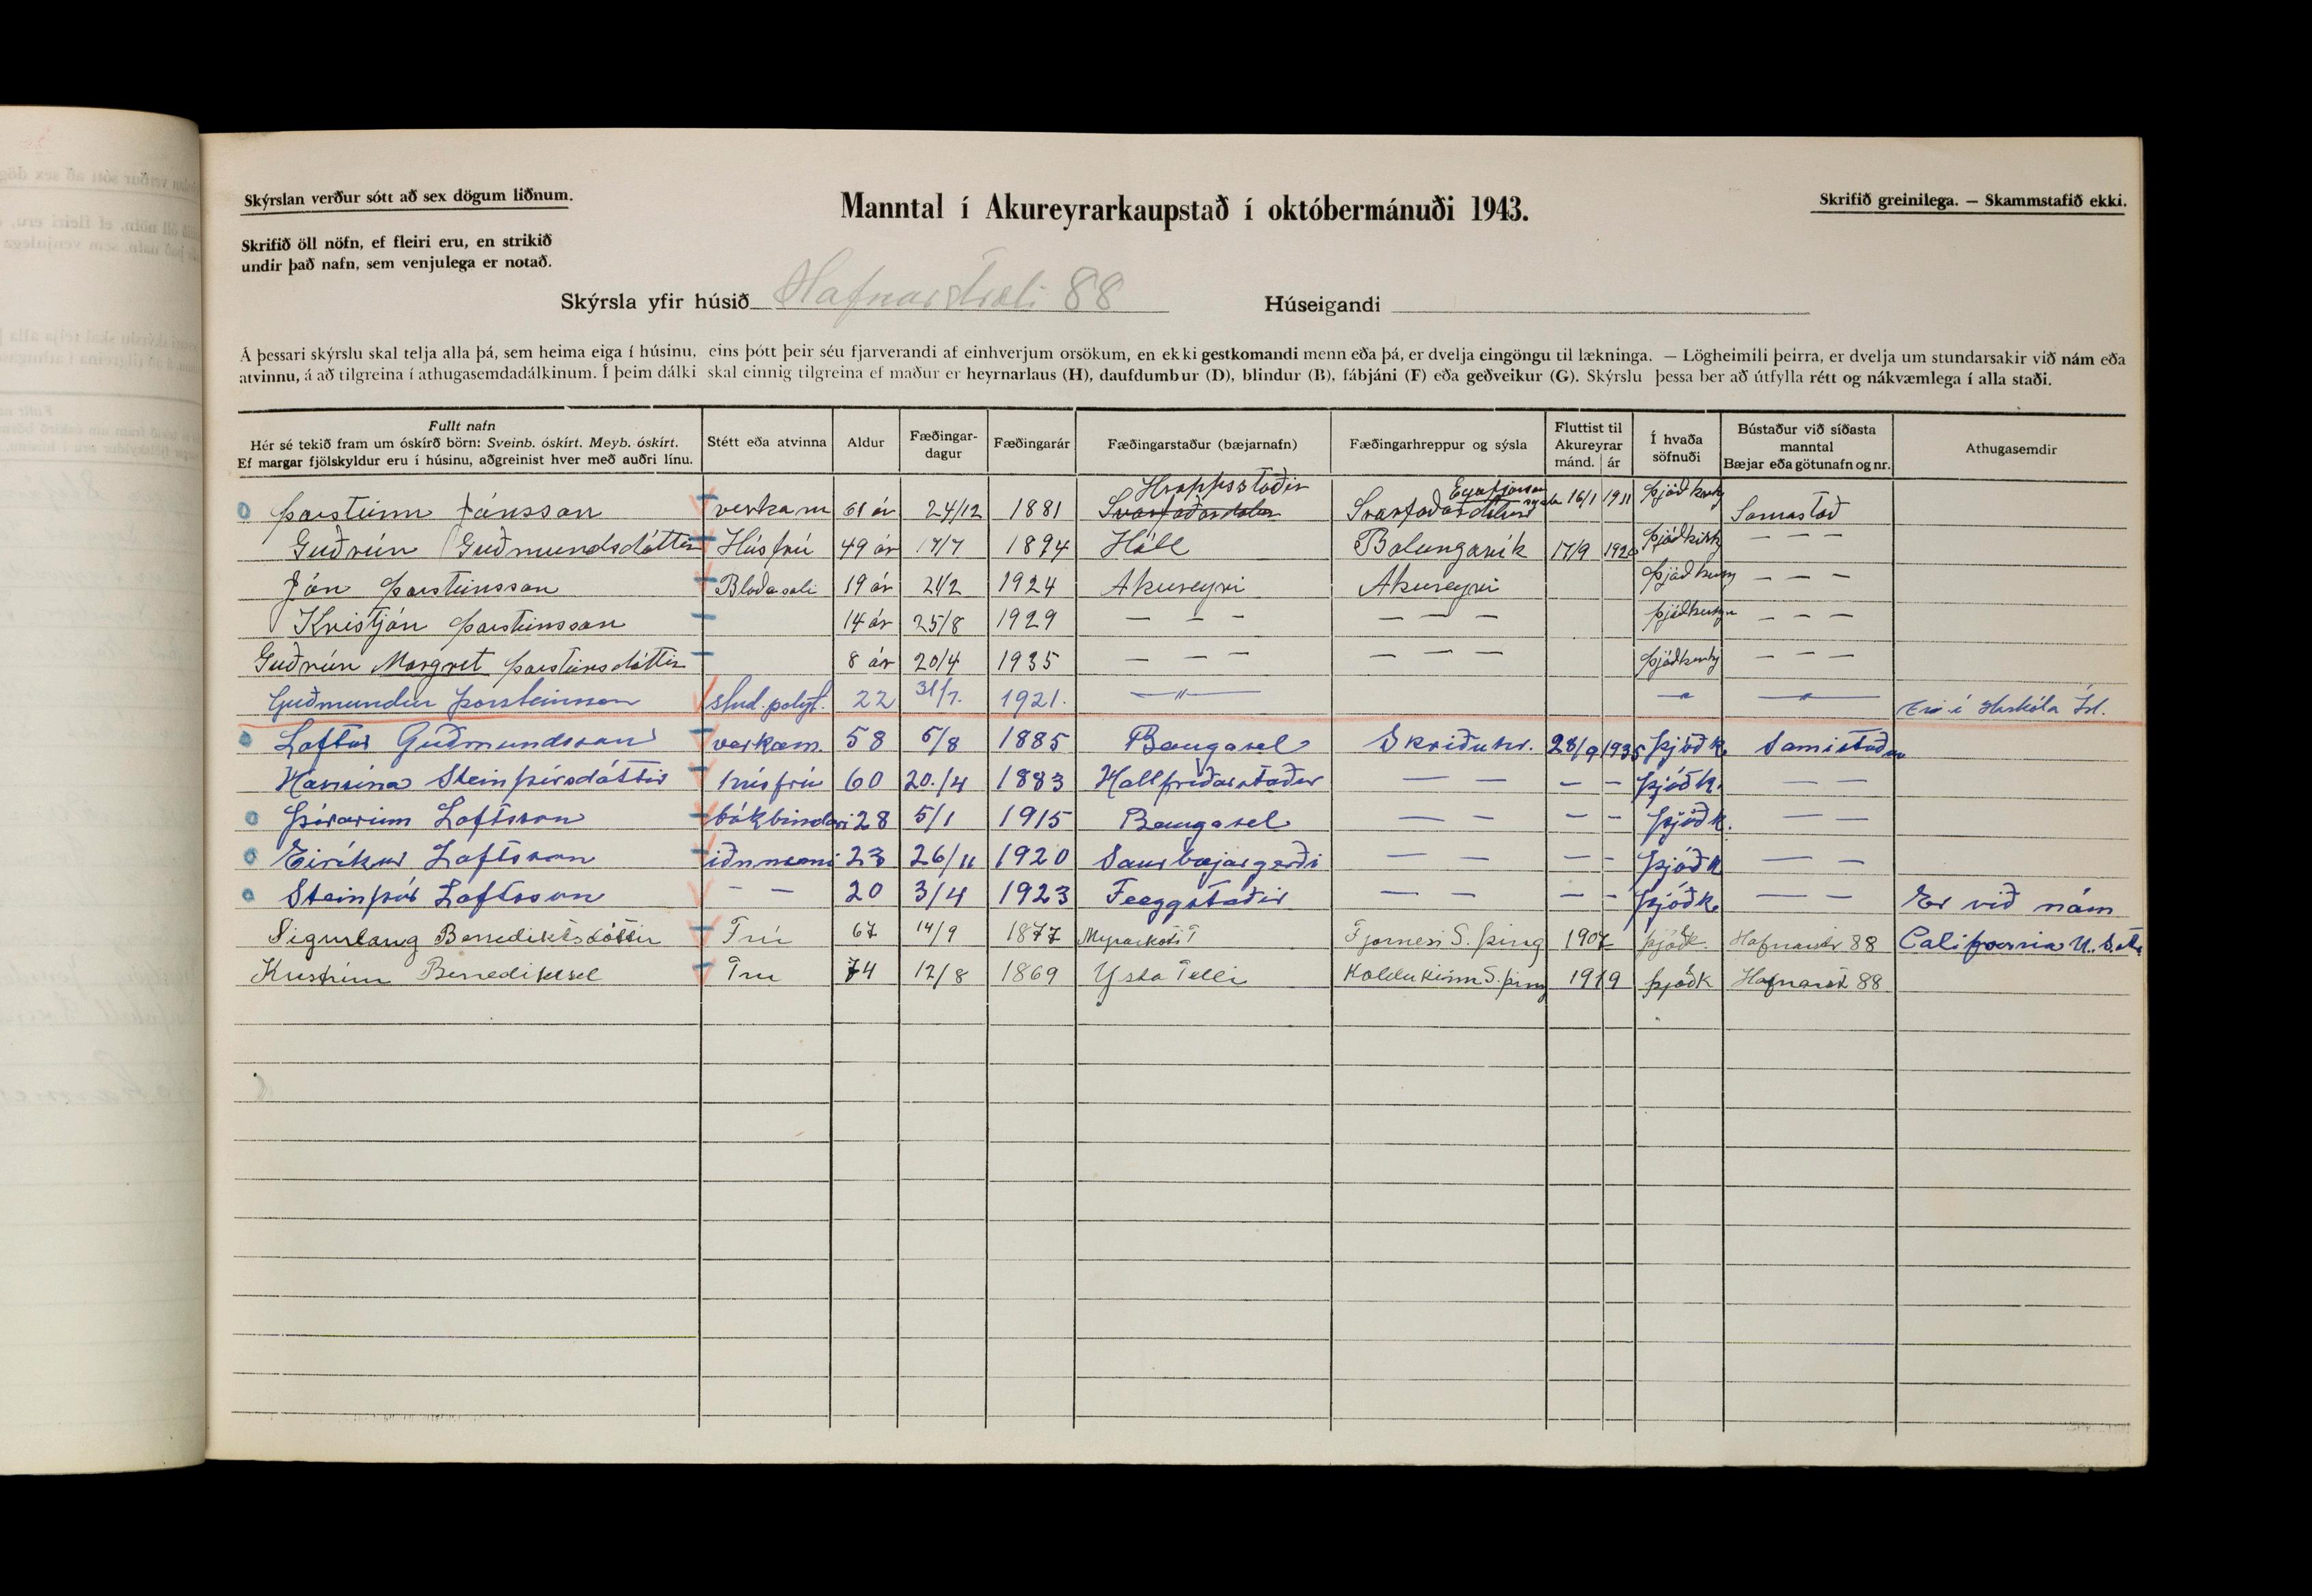 Skýrslan verður sótt að sex dögum liðnum.
Manntal í Akureyrarkaupstað í októbermánuði 1943.
Skrifið greinilega. — Skammstafið ekki.
Skrifið öll nöfn, ef fleiri eru, en strikið
undir það nafn, sem venjulega er notað.
Skýrsla yfir húsið Hafnarstræti 88 Húseigandi
Á þessari skýrslu skal telja alla þá, sem heima eiga í húsinu, eins þótt þeir séu fjarverandi af einhverjum orsökum, en ekki gestkomandi menn eða þá, er dvelja eingöngu til lækninga. — Lögheimili þeirra, er dvelja um stundarsakir við nám eða
atvinnu, á að tilgreina í athugasemdadálkinum. Í þeim dálki skal einnig tilgreina ef maður er heyrnarlaus (H), daufdumbur (D), blindur (B), fábjáni (F) eða geðveikur (G). Skýrslu þessa ber að útfylla rétt og nákvæmlega í alla staði.
Fullt nafn
Hér sé tekið fram um óskírð börn: Sveinb. óskírt. Meyb. óskírt.
Ef margar fjölskyldur eru í húsinu, aðgreinist hver með auðri línu.
Stétt eða atvinna
Aldur
Fæðingar-
dagur
Fæðingarár
Fæðingarstaður (bæjarnafn)
Fæðingarhreppur og sýsla
Fluttist til
Akureyrar
mánd. ár
Í hvaða
söfnuði
Bústaður við síðasta
manntal
Bæjar eða götunafn og nr.
Athugasemdir
Þorsteinn Jónsson verkam 61 ár 24/12 1881 Hrappsstaðir Svarfaðardalur Svarfaðardalur 16/1 1911 Samastað
Guðrún Guðmundsdóttir Húsfrú 49 ár 17/7 1894 Hóll Bolungarvík 17/9 — — —
Jón Þorsteinsson Blaðasali 19 ár 21/2 1924 Akureyri Akureyri — — —
Kristján Þorsteinsson 14 ár 25/8 1929 — — — — — — — — —
Guðrún Margret Þorsteinsdóttir 8 ár 20/4 1935 — — — — — — — — —
Guðmundur Þorsteinsson stud. polyt. 22 31/7. 1921. — " — " — " — Er í Háskóla Ísl.
Loftur Guðmundsson verkam. 58 5/8 1885 Baugasel Skriðuhr. 28/9 1935 Þjóðk. Samistaður
Hansína Steinþórsdóttir húsfrú 60 20./4 1883 Hallfríðarstaðir — — — — Þjóðk. — —
Þórarinn Loftsson bókbindari 28 5/1 1915 Baugasel — — — — Þjóðk. — —
Eiríkur Loftsson iðnnemi 23 26/11 1920 Saurbæjargerði — — — — Þjóðk — —
Steinþór Loftsson — — 20 3/4 1923 Féeggstaðir — — — — Þjóðk. — — Er við nám
Sigurlaug Benediktsdóttir Frú 67 14/9 1877 Tjörnesi S. þing 1907 þjóðk. Hafnarstr 88 California U.S.A.
Kristrún Frú 74 12/8 1869 Ysta Felli Koldukinn S. þing 1919 þjóðk Hafnarst 88